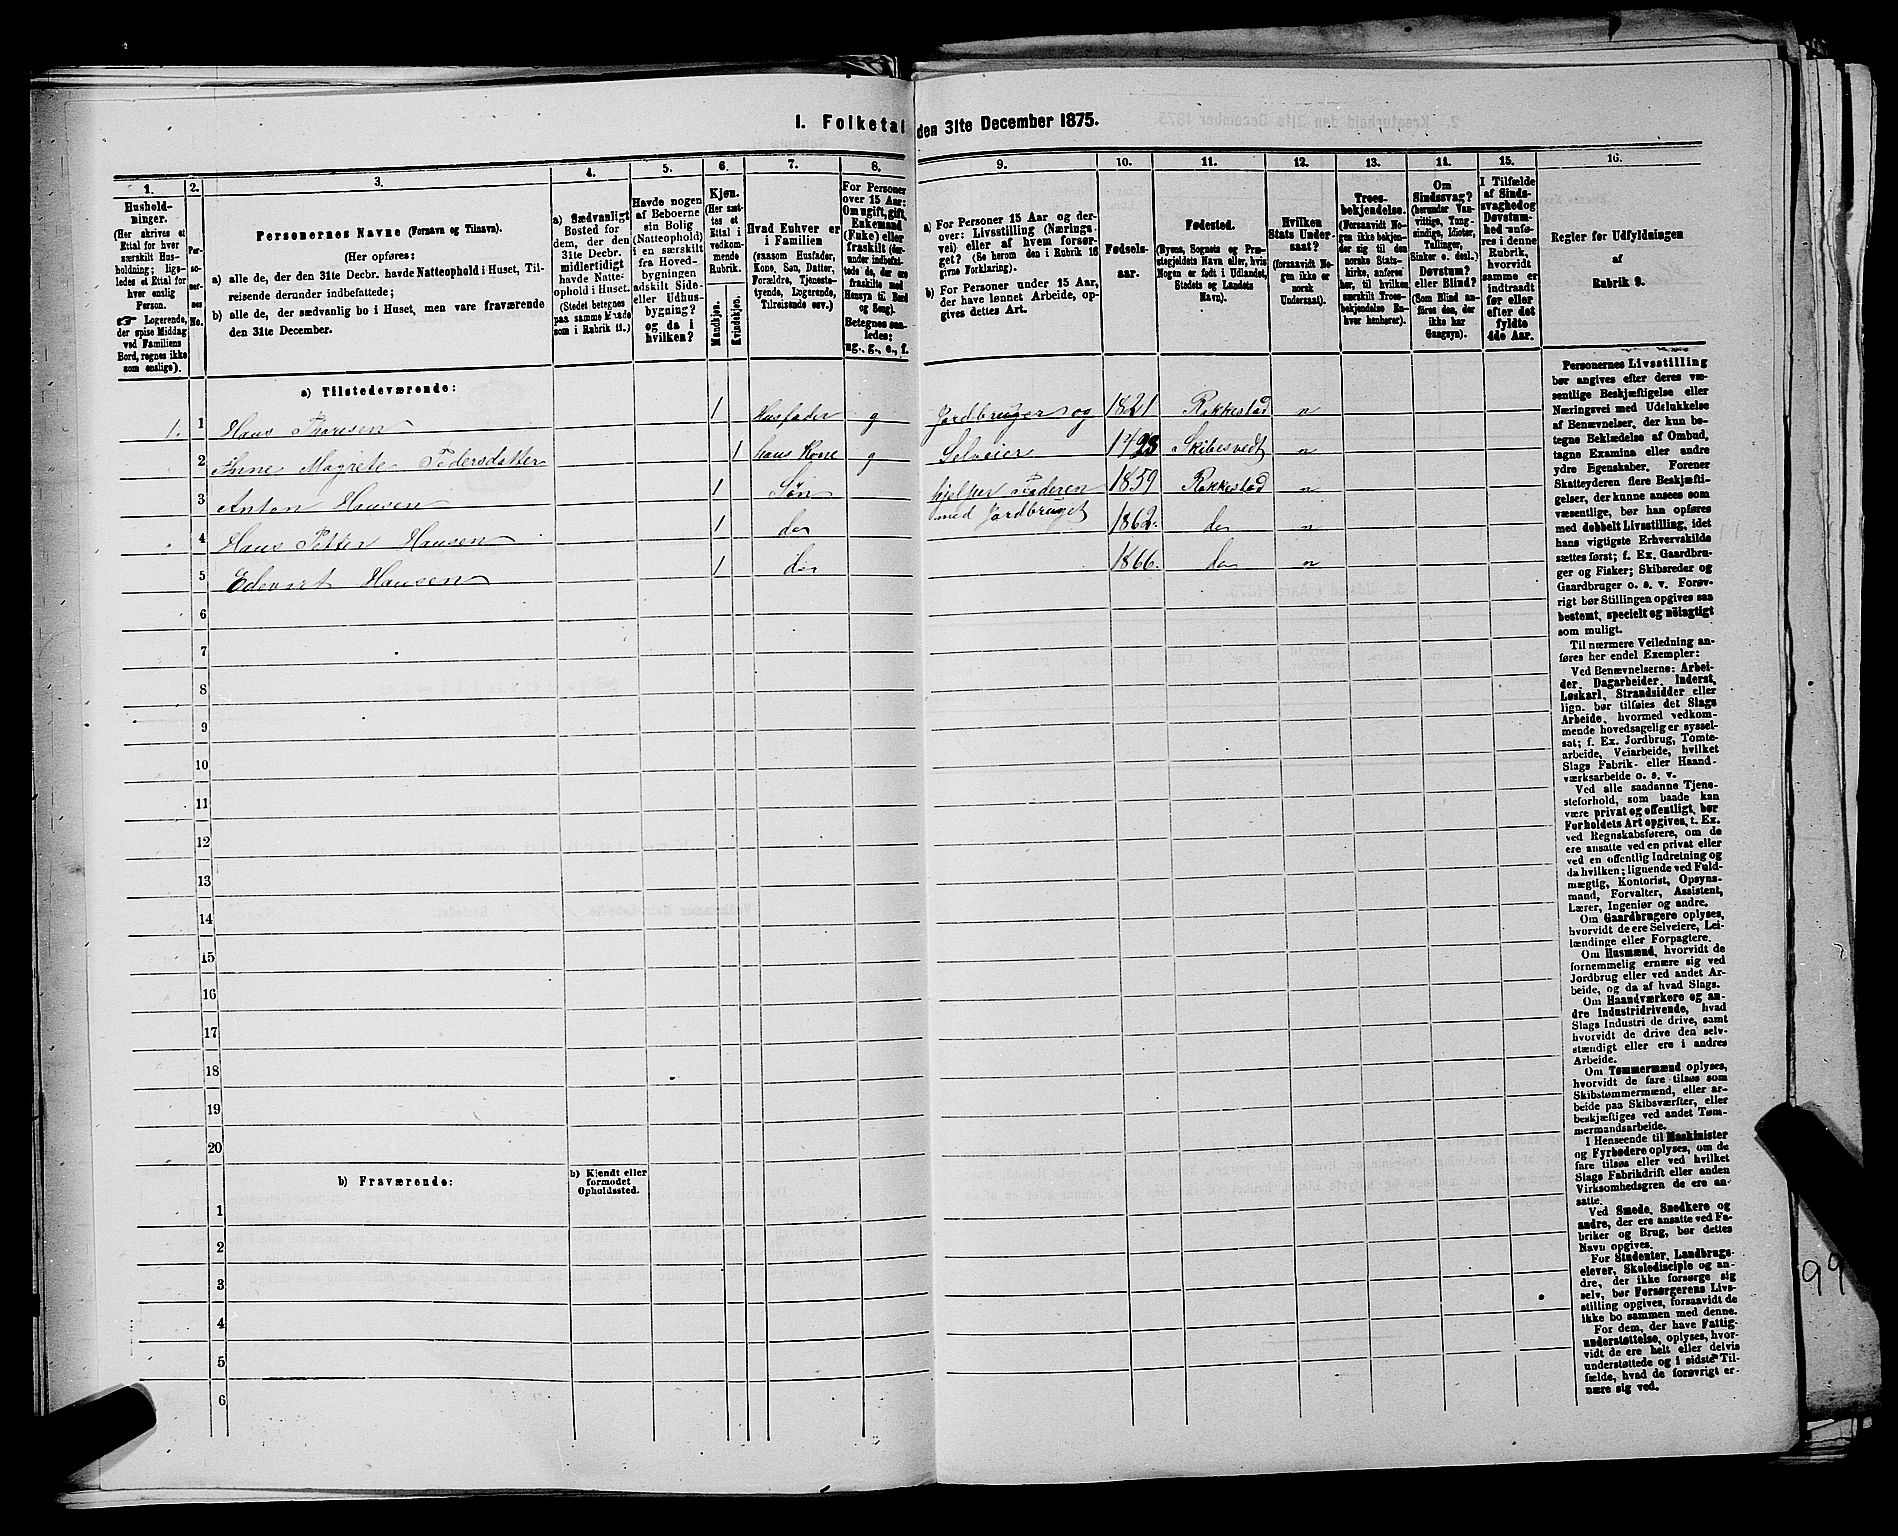 I. Folketal den 31te December 1875.
1. 2. 3. 4. 5. 6. 7. 8. 9. 10. 11. 12. 13. 14. 15. 16.
Hushold-
ninger.
(Her skrives et
Ettal for hver
særskilt Hus-
holdning; lige-
ledes et Ettal for
hver enslig
Person.
☞ Logerende,
der spise Middag
ved Familiens
Bord, regnes ikke
som enslige).
Per-
so-
ner-
nes
No.
Personernes Navne (Fornavn og Tilnavn).
(Her opføres:
a) alle de, der den 31te Decbr. havde Natteophold i Huset, Til-
reisende derunder indbefattede;
b) alle de, der sædvanlig bo i Huset, men vare fraværende
den 31te December.
a) Sædvanligt
Bosted for
dem, der den
31te Decbr.
midlertidigt
havde Natte-
ophold i Huset.
(Stedet betegnes
paa samme Maade
som i Rubrik 11.)
Havde nogen
af Beboerne
sin Bolig
(Natteophold)
i en særskilt
fra Hoved-
bygningen
adskilt Side-
eller Udhus-
bygning?
og da i
hvilken?
Kjøn.
(Her sæt-
tes et
Ettal i
vedkom-
mende
Rubrik.
Mandkjøn.
Kvindekjøn.
Hvad Enhver er
i Familien
(saasom Husfader,
Kone, Søn, Datter,
Forældre, Tjeneste-
tyende, Logerende,
Tilreisende osv.)
For Personer
over 15 Aar:
Om ugift, gift,
Enkemand
(Enke) eller
fraskilt (der-
under indbefat-
tede de, der ere
fraskilte med
Hensyn til Bord
og Seng).
Betegnes saa-
ledes:
ug., g., e., f.
a) For Personer 15 Aar og der-
over: Livsstilling (Nærings-
vei) eller af hvem forsør-
get? (Se herom den i Rubrik 16
givne Forklaring).
b) For Personer under 15 Aar,
der have lønnet Arbeide, op-
gives dettes Art.
Fødsels-
aar.
Fødested.
(Byens, Sognets og Præ-
stegjeldets Navn eller, hvis
Nogen er født i Udlandet,
Stedets og Landets
Navn).
Hvilken
Stats Under-
saat?
(forsaavidt No-
gen ikke er
norsk
Undersaat).
Troes-
bekjendelse.
(Forsaavidt No-
gen ikke bekjen-
der sig til den
norske Stats-
kirke, anføres
her, til hvilken
særskilt Troes-
bekjendelse En-
hver henhører).
Om
Sindssvag?
(herunder Van-
vittige, Tung-
sindige, Idioter,
Tullinger,
Sinker o. desl.)
Døvstum?
eller Blind?
(Som Blind an-
føres den, der
ikke har
Gangsyn).
I Tilfælde
af Sinds-
svaghed og
Døvstum-
hed anfø-
res i denne
Rubrik,
hvorvidt
samme er
indtraadt
før eller
efter det
fyldte
4de Aar.
Regler for Udfyldningen
af
Rubrik 9.
a) Tilstedeværende:
1. 1 Hans Thoresen 1 Husfader g Jordbruger og 1821 Rakkestad n
2 Anne Magrete Pedersdatter 1 hans Kone g Selveier Skibtvedt n
3 Anton Hansen 1 Søn hjelper Faderen 1859 Rakkestad n
med Jordbruget
4 Hans Petter Hansen 1 do 1862. do n
5 Edvart Hansen 1 do 1866. do n
6
7
8
9
10
11
12
13
14
15
16
17
18
19
20
b) Fraværende:
b) Kjendt eller
formodet
Opholdssted.
1
2
3
4
5
6
Personernes Livsstilling
bør angives efter deres væ-
sentlige Beskjæftigelse eller
Næringsvei med Udelukkelse
af Benævnelser, der kun be-
tegne Beklædelse af Ombud,
tagne Examina eller andre
ydre Egenskaber. Forener
Skatteyderen flere Beskjæfti-
gelser, der kunne ansees som
væsentlige, bør han opføres
med dobbelt Livsstilling, idet
hans vigtigste Erhvervskilde
sættes først; f. Ex. Gaardbru-
ger og Fisker; Skibsreder og
Gaardbruger o. s. v. Forøv-
rigt bør Stillingen opgives saa
bestemt, specielt og nöiagtigt
som muligt.
Til nærmere Veiledning an-
føres her endel Exempler:
Ved Benævnelserne: Arbei-
der, Dagarbeider, Inderst,
Løskarl, Strandsidder eller
lign. bør tilføies det Slags
Arbeide, hvormed vedkom-
mende hovedsagelig er syssel-
sat; f. Ex. Jordbrug, Tomte-
arbeide, Veiarbeide, hvilket
Slags Fabrik- eller Haand-
værksarbeide o. s. v.
Ved alle saadanne Tjene-
steforhold, som baade kan
være privat og offentligt, bør
Forholdets Art opgives, f. Ex.
ved Regnskabsførere, om de
ere ansatte ved en privat eller
ved en offentlig Indretning og
da hvilken; lignende ved Fuld-
mægtig, Kontorist, Opsyns-
mand, Forvalter, Assistent,
Lærer, Ingeniør og andre.
Om Gaardbrugere oplyses,
hvorvidt de ere Selveiere, Lei-
lændinge eller Forpagtere.
Om Husmænd, hvorvidt de
fornemmelig ernære sig ved
Jordbrug eller ved andet Ar-
beide, og da af hvad Slags.
Om Haandværkere og an-
dre Industridrivende, hvad
Slags Industri de drive, samt
hvorvidt de drive den selv-
stændigt eller ere i andres
Arbeide.
Om Tømmermænd oplyses,
hvorvidt de fare tilsøs som
Skibstømmermænd, eller ar-
beide paa Skibsværfter, eller
beskjæftiges ved andet Tøm-
mermandsarbeide.
I Henseende til Maskinister
og Fyrbødere oplyses, om de
fare tilsøs eller ved hvilket
Slags Fabrikdrift eller anden
Virksomhedsgren de ere an-
satte.
Ved Smede, Snedkere og
andre, der ere ansatte ved Fa-
briker og Brug, bør dettes
Navn opgives.
For Studenter, Landbrugs-
elever, Skoledisciple og an-
dre, der ikke forsørge sig
selv, bør Forsørgerens Livs-
stilling opgives, forsaavidt de
ikke bo sammen med denne.
For dem, der have Fattig-
understøttelse, oplyses, hvor-
vidt de ere helt eller delvis
understøttede og i sidste Til-
fælde, hvad de forøvrigt er-
nære sig ved.
99